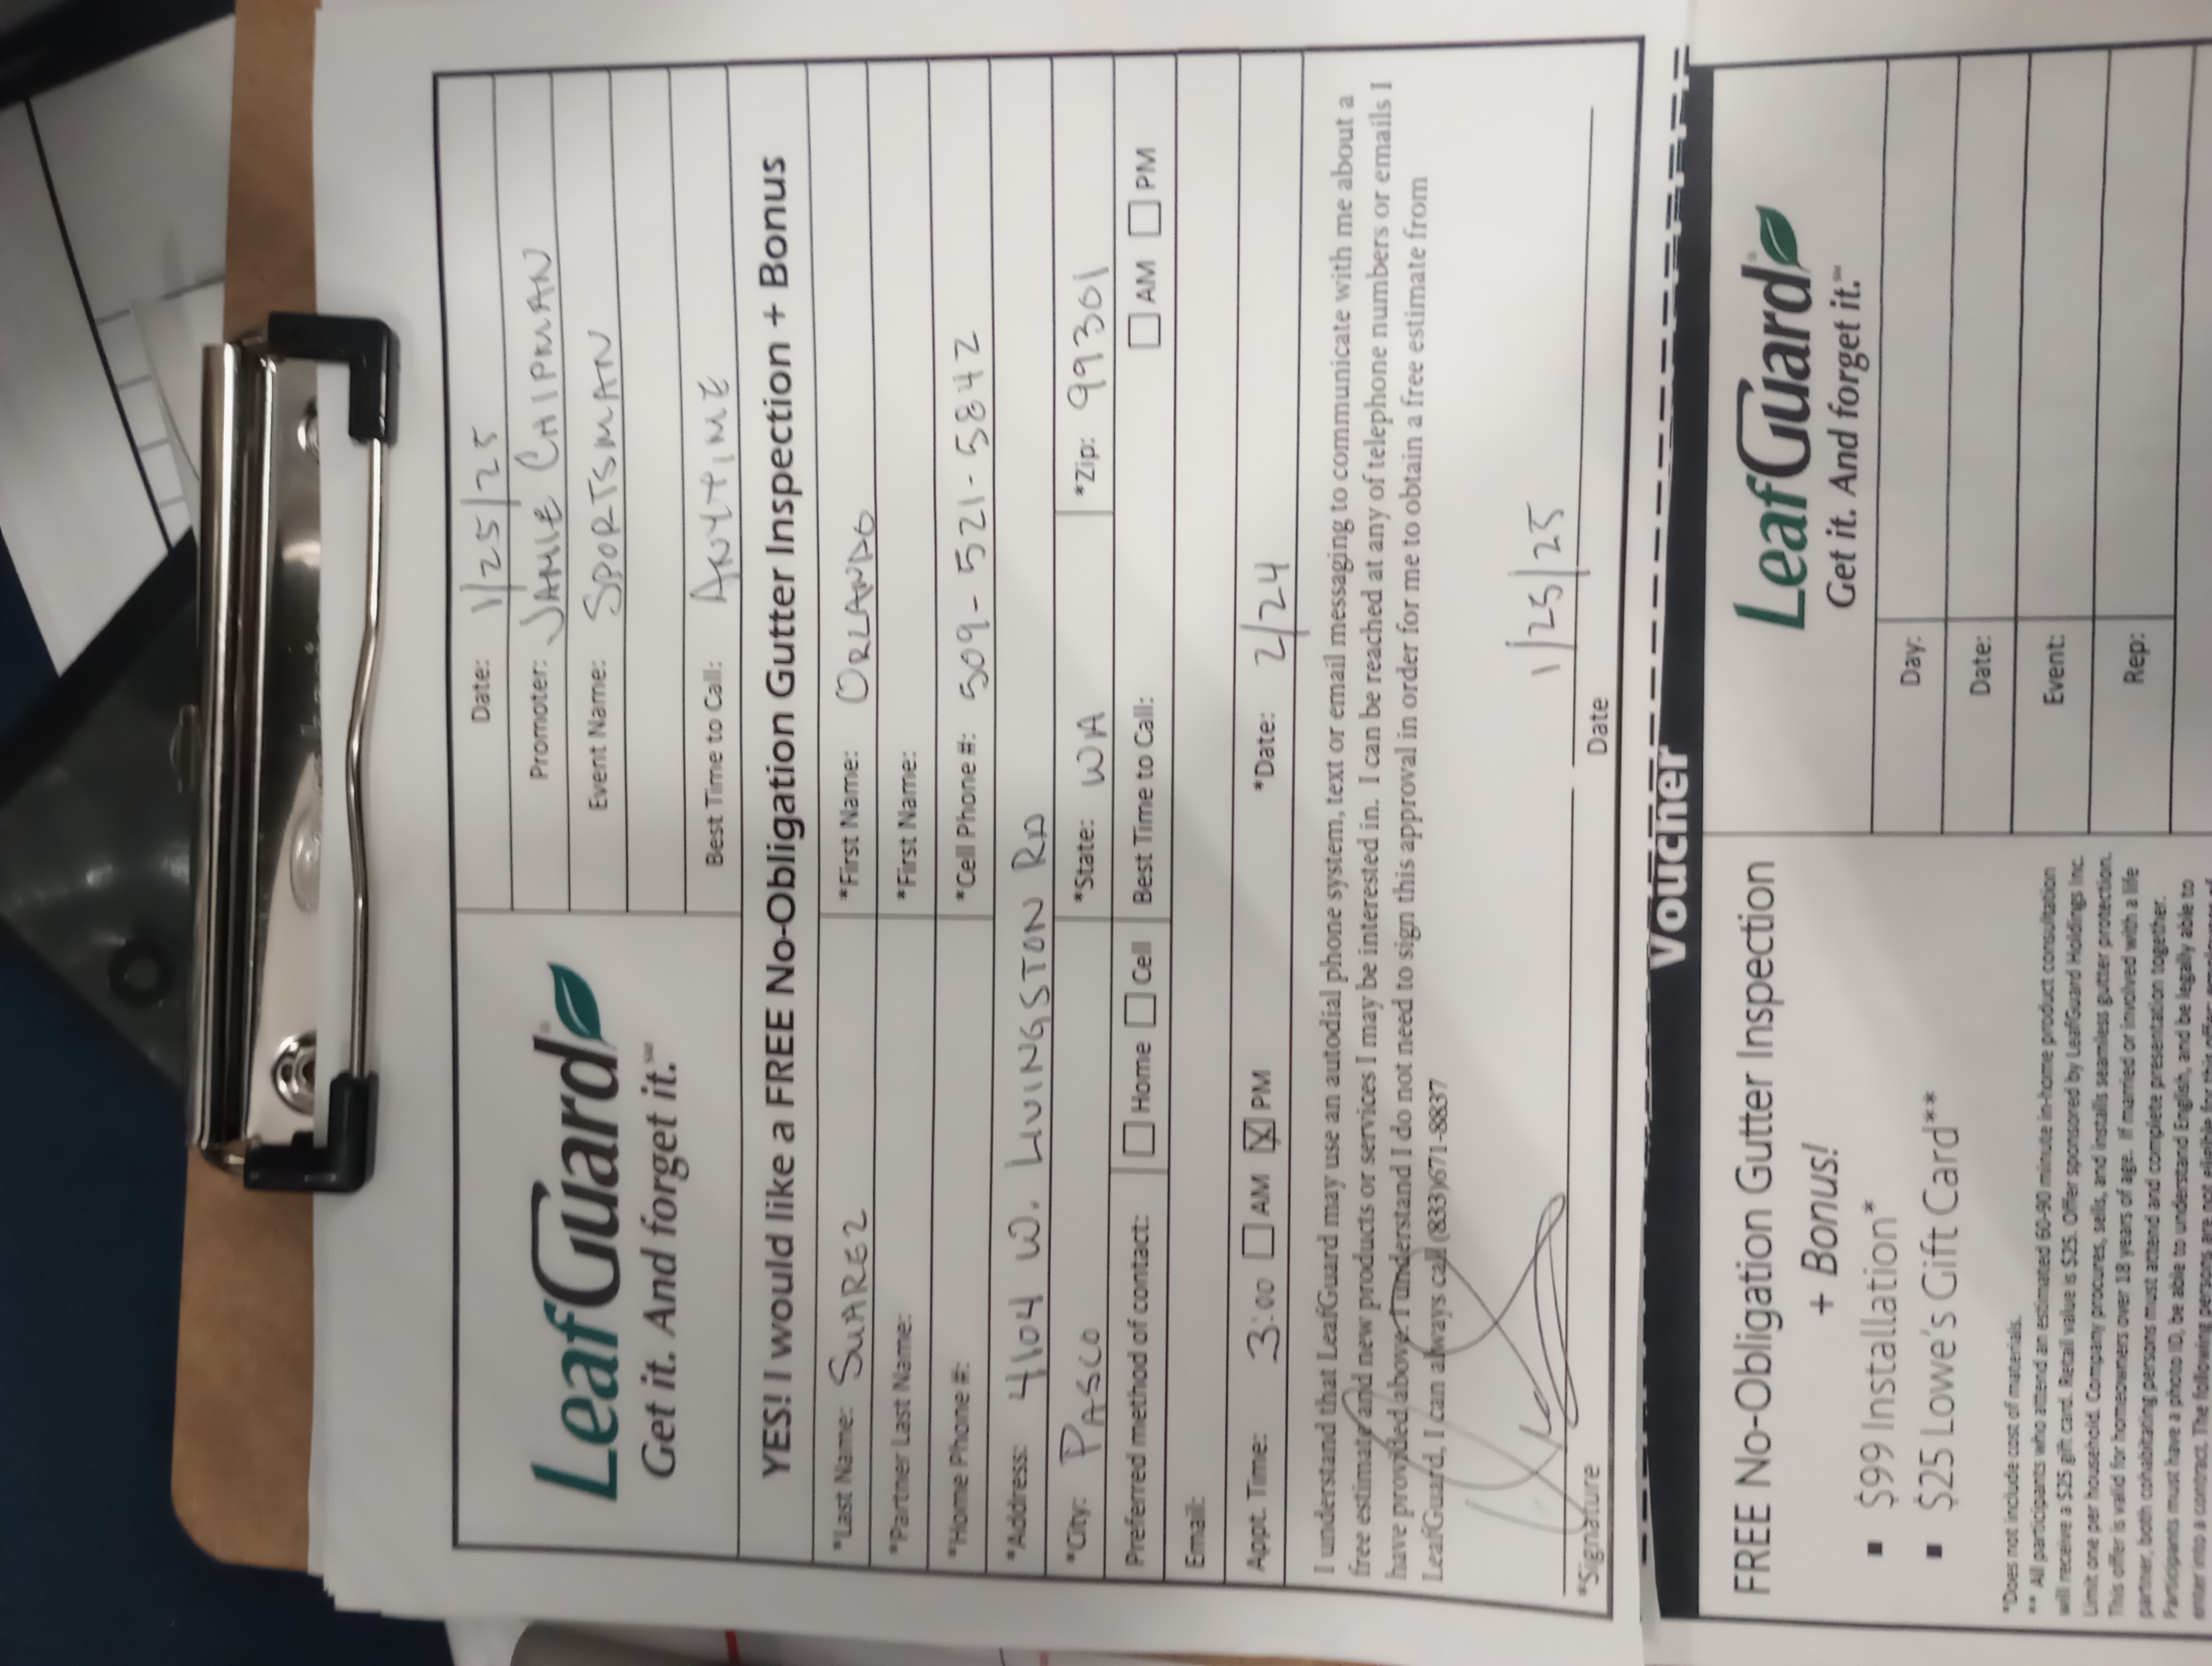 Date: 1/25/25
Promoter: JAMIE CHIPMAN
LeafGuard
Get it. And forget it.℠
Event Name: SPORTSMAN
Best Time to Call: ANYTIME
YES! I would like a FREE No-Obligation Gutter Inspection + Bonus
*Last Name: SUAREZ *First Name: ORLANDO
*Partner Last Name: *First Name:
*Home Phone #: *Cell Phone #: 509-521-5842
*Address: 4104 W. LIVINGSTON RD
*City: PASCO *State: WA *Zip: 99301
Preferred method of contact: Home Cell Best Time to Call: AM PM
Email:
Appt. Time: 3:00 AM X PM *Date: 2/24
I understand that LeafGuard may use an autodial phone system, text or email messaging to communicate with me about a
free estimate and new products or services I may be interested in. I can be reached at any of telephone numbers or emails I
have provided above. I understand I do not need to sign this approval in order for me to obtain a free estimate from
LeafGuard, I can always call (833)671-8837
1/25/25
*Signature Date
Voucher
FREE No-Obligation Gutter Inspection
+ Bonus!
▪ $99 Installation*
▪ $25 Lowe's Gift Card**
*Does not include cost of materials.
** All participants who attend an estimated 60-90 minute in-home product consultation
will receive a $25 gift card. Retail value is $25. Offer sponsored by LeafGuard Holdings Inc.
Limit one per household. Company procures, sells, and installs seamless gutter protection.
This offer is valid for homeowners over 18 years of age. If married or involved with a life
partner, both cohabitating persons must attend and complete presentation together.
Participants must have a photo ID, be able to understand English, and be legally able to
enter into a contract. The following persons are not eligible for this offer: employees of
LeafGuard
Get it. And forget it.℠
Day:
Date:
Event:
Rep: